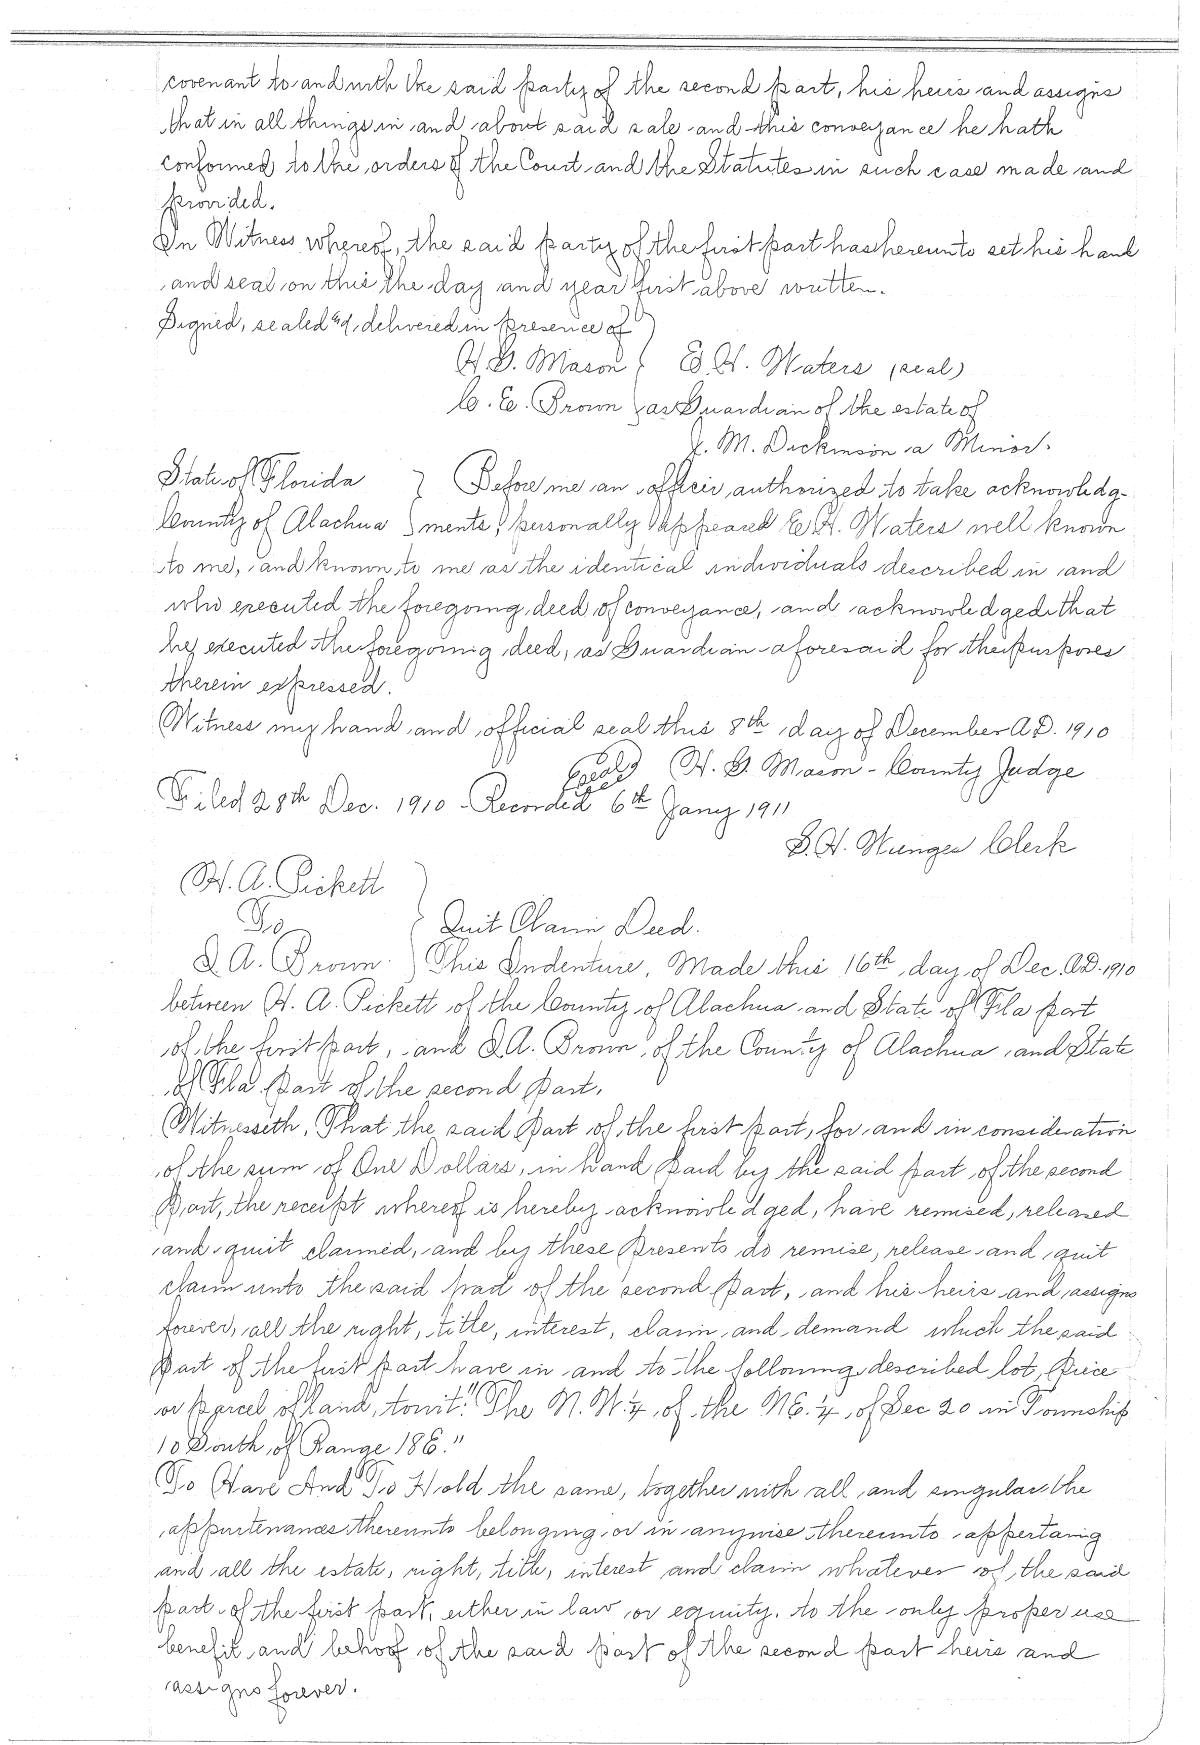 covenant to and with the said party of the second part, his heirs and assigns
that in all things in and about said sale and this conveyance he hath
conformed to the orders of the Court and the Statutes in such case made and
provided.
In Witness whereof, the said party of the first part has hereunto set his hand
and seal on this the day and year first above written.
Signed, sealed & delivered in presence of
H. G. Mason } E. H. Waters (seal)
C. E. Brown } as Guardian of the estate of
J. M. Dickinson a Minor.
State of Florida } Before me an officer authorized to take acknowledg-
County of Alachua } ments, personally appeared E. H. Waters well known
to me, and known to me as the identical individuals described in and
who executed the foregoing deed of conveyance, and acknowledged that
he executed the foregoing deed, as Guardian aforesaid for the purposes
therein expressed.
Witness my hand and official seal this 8th day of December A.D. 1910
(Seal) H. G. Mason - County Judge
Filed 28th Dec. 1910 - Recorded 6th Jany 1911
S. H. Wienges Clerk
H. A. Pickett }
To } Quit Claim Deed.
I. A. Brown. } This Indenture, Made this 16th day of Dec. A.D. 1910
between H. A. Pickett of the County of Alachua and State of Fla part
of the first part, and I. A. Brown of the County of Alachua and State
of Fla part of the second part.
Witnesseth, That the said part of the first part, for and in consideration
of the sum of One Dollars, in hand paid by the said part of the second
part, the receipt whereof is hereby acknowledged, have remised, released
and quit claimed, and by these presents do remise, release and quit
claim unto the said part of the second part, and his heirs and assigns
forever, all the right, title, interest, claim and demand which the said
part of the first part have in and to the following described lot, piece
or parcel of land, towit: "The N.W. 1/4 of the N.E. 1/4 of Sec 20 in Township
10 South of Range 18 E."
To Have And To Hold the same, together with all and singular the
appurtenances thereunto belonging or in anywise thereunto appertanig
and all the estate, right, title, interest and claim whatever of the said
part of the first part, either in law or equity, to the only proper use
benefit and behoof of the said part of the second part heirs and
assigns forever.